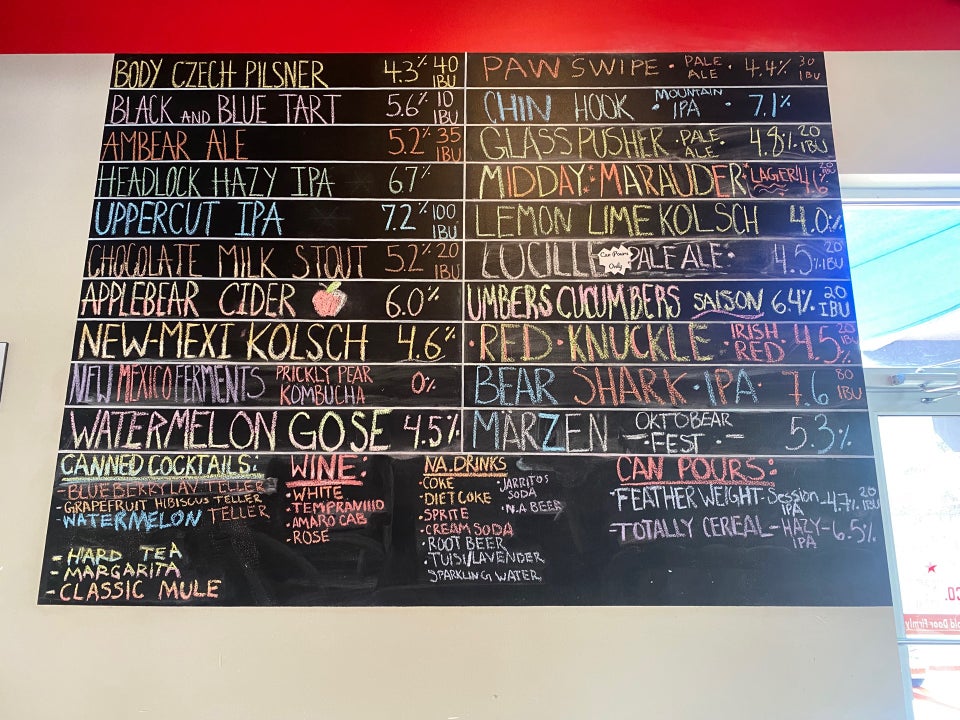 BODY CZECH PILSNER 4.3% 40 IBU
BLACK AND BLUE TART 5.6% 10 IBU
AMBEAR ALE 5.2% 35 IBU
HEADLOCK HAZY IPA 67%
UPPERCUT IPA 7.2% 100 IBU
CHOCOLATE MILK STOUT 5.2% 20 IBU
APPLEBEAR CIDER 6.0%
NEW-MEXI KOLSCH 4.6%
NEW MEXICO FERMENTS PRICKLY PEAR KOMBUCHA 0%
WATERMELON GOSE 4.5%
PAW SWIPE · PALE ALE · 4.4% 30 IBU
CHIN HOOK · MOUNTAIN IPA · 7.1%
GLASS PUSHER · PALE ALE · 4.8% 20 IBU
MIDDAY MARAUDER LAGER 4.6% 20 IBU
LEMON LIME KOLSCH 4.0%
LUCILLE Can Pours Only PALE ALE · 4.5% 20 IBU
UMBERS CUCUMBERS SAISON 6.4% 20 IBU
· RED · KNUCKLE · IRISH RED 4.5% 20 IBU
BEAR SHARK · IPA · 7.6 80 IBU
MÄRZEN OKTOBEAR - FEST - 5.3%
CANNED COCKTAILS:
- BLUEBERRY LAV TELLER
- GRAPEFRUIT HIBISCUS TELLER
- WATERMELON TELLER
- HARD TEA
- MARGARITA
- CLASSIC MULE
WINE:
· WHITE
· TEMPRANILLO
· AMARO CAB
· ROSE
N.A. DRINKS
· COKE
· DIET COKE
· SPRITE
· CREAM SODA
· ROOT BEER
· TULSI/LAVENDER
SPARKLING WATER
· JARRITOS
SODA
· N.A BEER
CAN POURS:
· FEATHER WEIGHT - Session IPA - 4.7% 20 IBU
· TOTALLY CEREAL - HAZY IPA - 6.5%
CO.
old Door Firmly